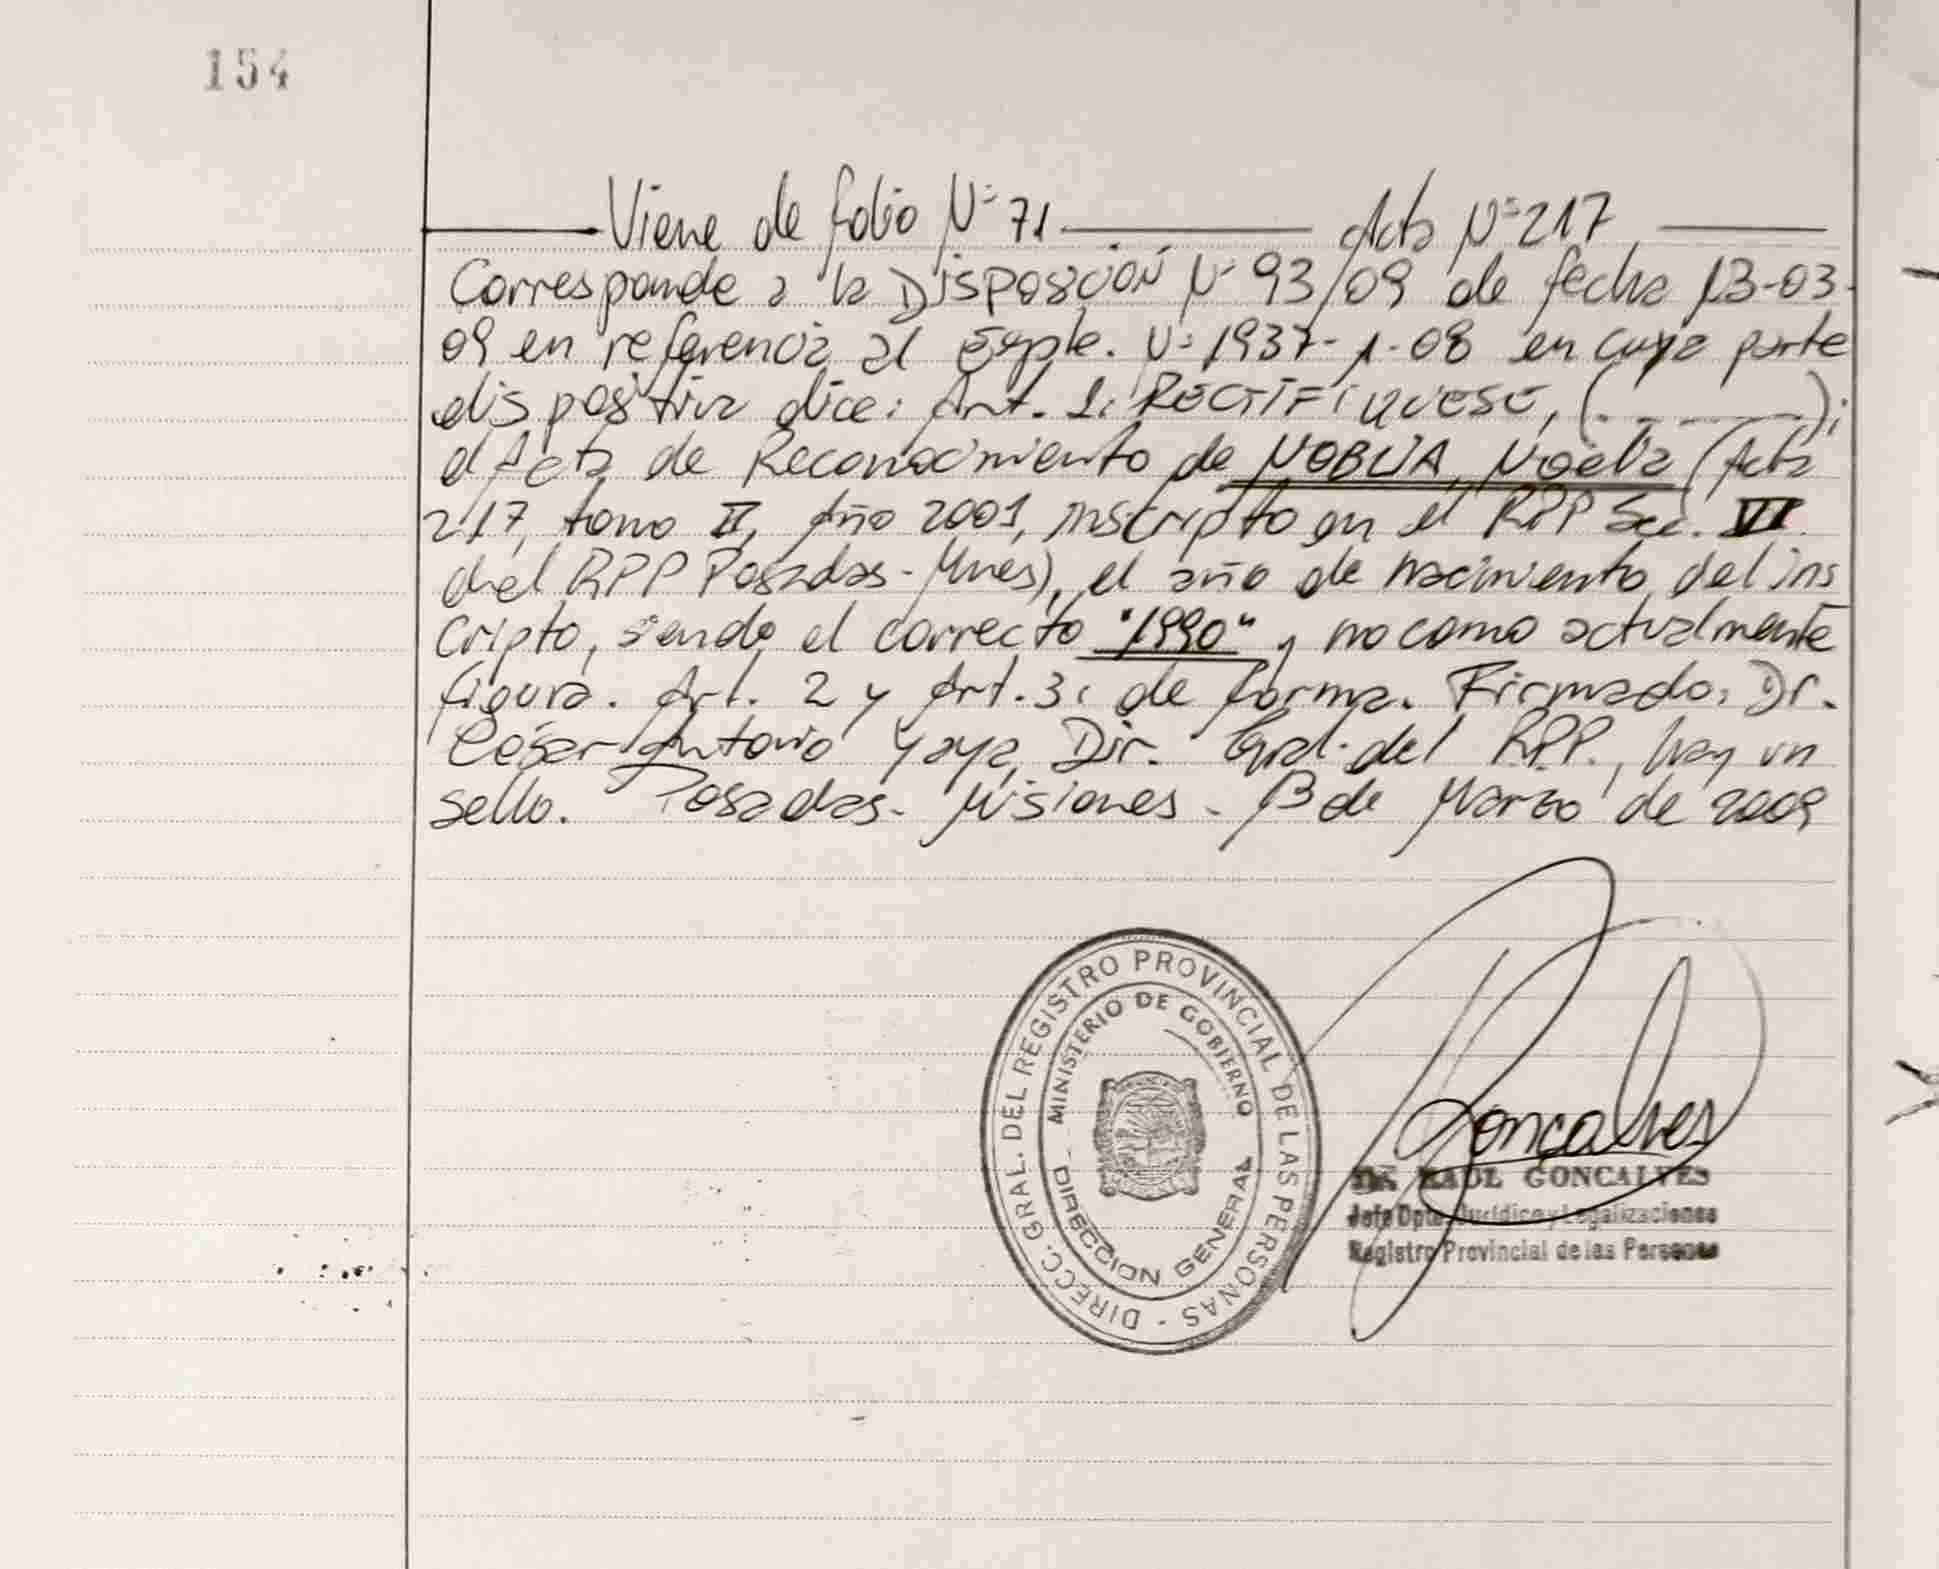 154
Viene de folio Nº 71 Acta Nº 217
Corresponde a la Disposición Nº 93/09 de fecha 13-03-
09 en referencia al Expte. Nº 1937-1-08 en cuya parte
dispositiva dice: Art. 1: RECTIFIQUESE, (- - - - -);
el Acta de Reconocimiento de NOBLIA, Noelia (Acta
217, tomo II, Año 2001, inscripto en el RPP Sec. VI
del RPP Posadas-Mnes), el año de nacimiento del ins
cripto, siendo el correcto "1990" y no como actualmente
figura. Art. 2 y Art. 3: de forma. Firmado: Dr.
César Antonio Yaya, Dir. Gral. del RPP., hay un
sello. Posadas- Misiones - 13 de Marzo de 2009
DIRECC. GRAL. DEL REGISTRO PROVINCIAL DE LAS PERSONAS -
MINISTERIO DE GOBIERNO
DIRECCION GENERAL
Goncalves
RAUL GONCALVES
Jefe Dpto. Jurídico y Legalizaciones
Registro Provincial de las Personas